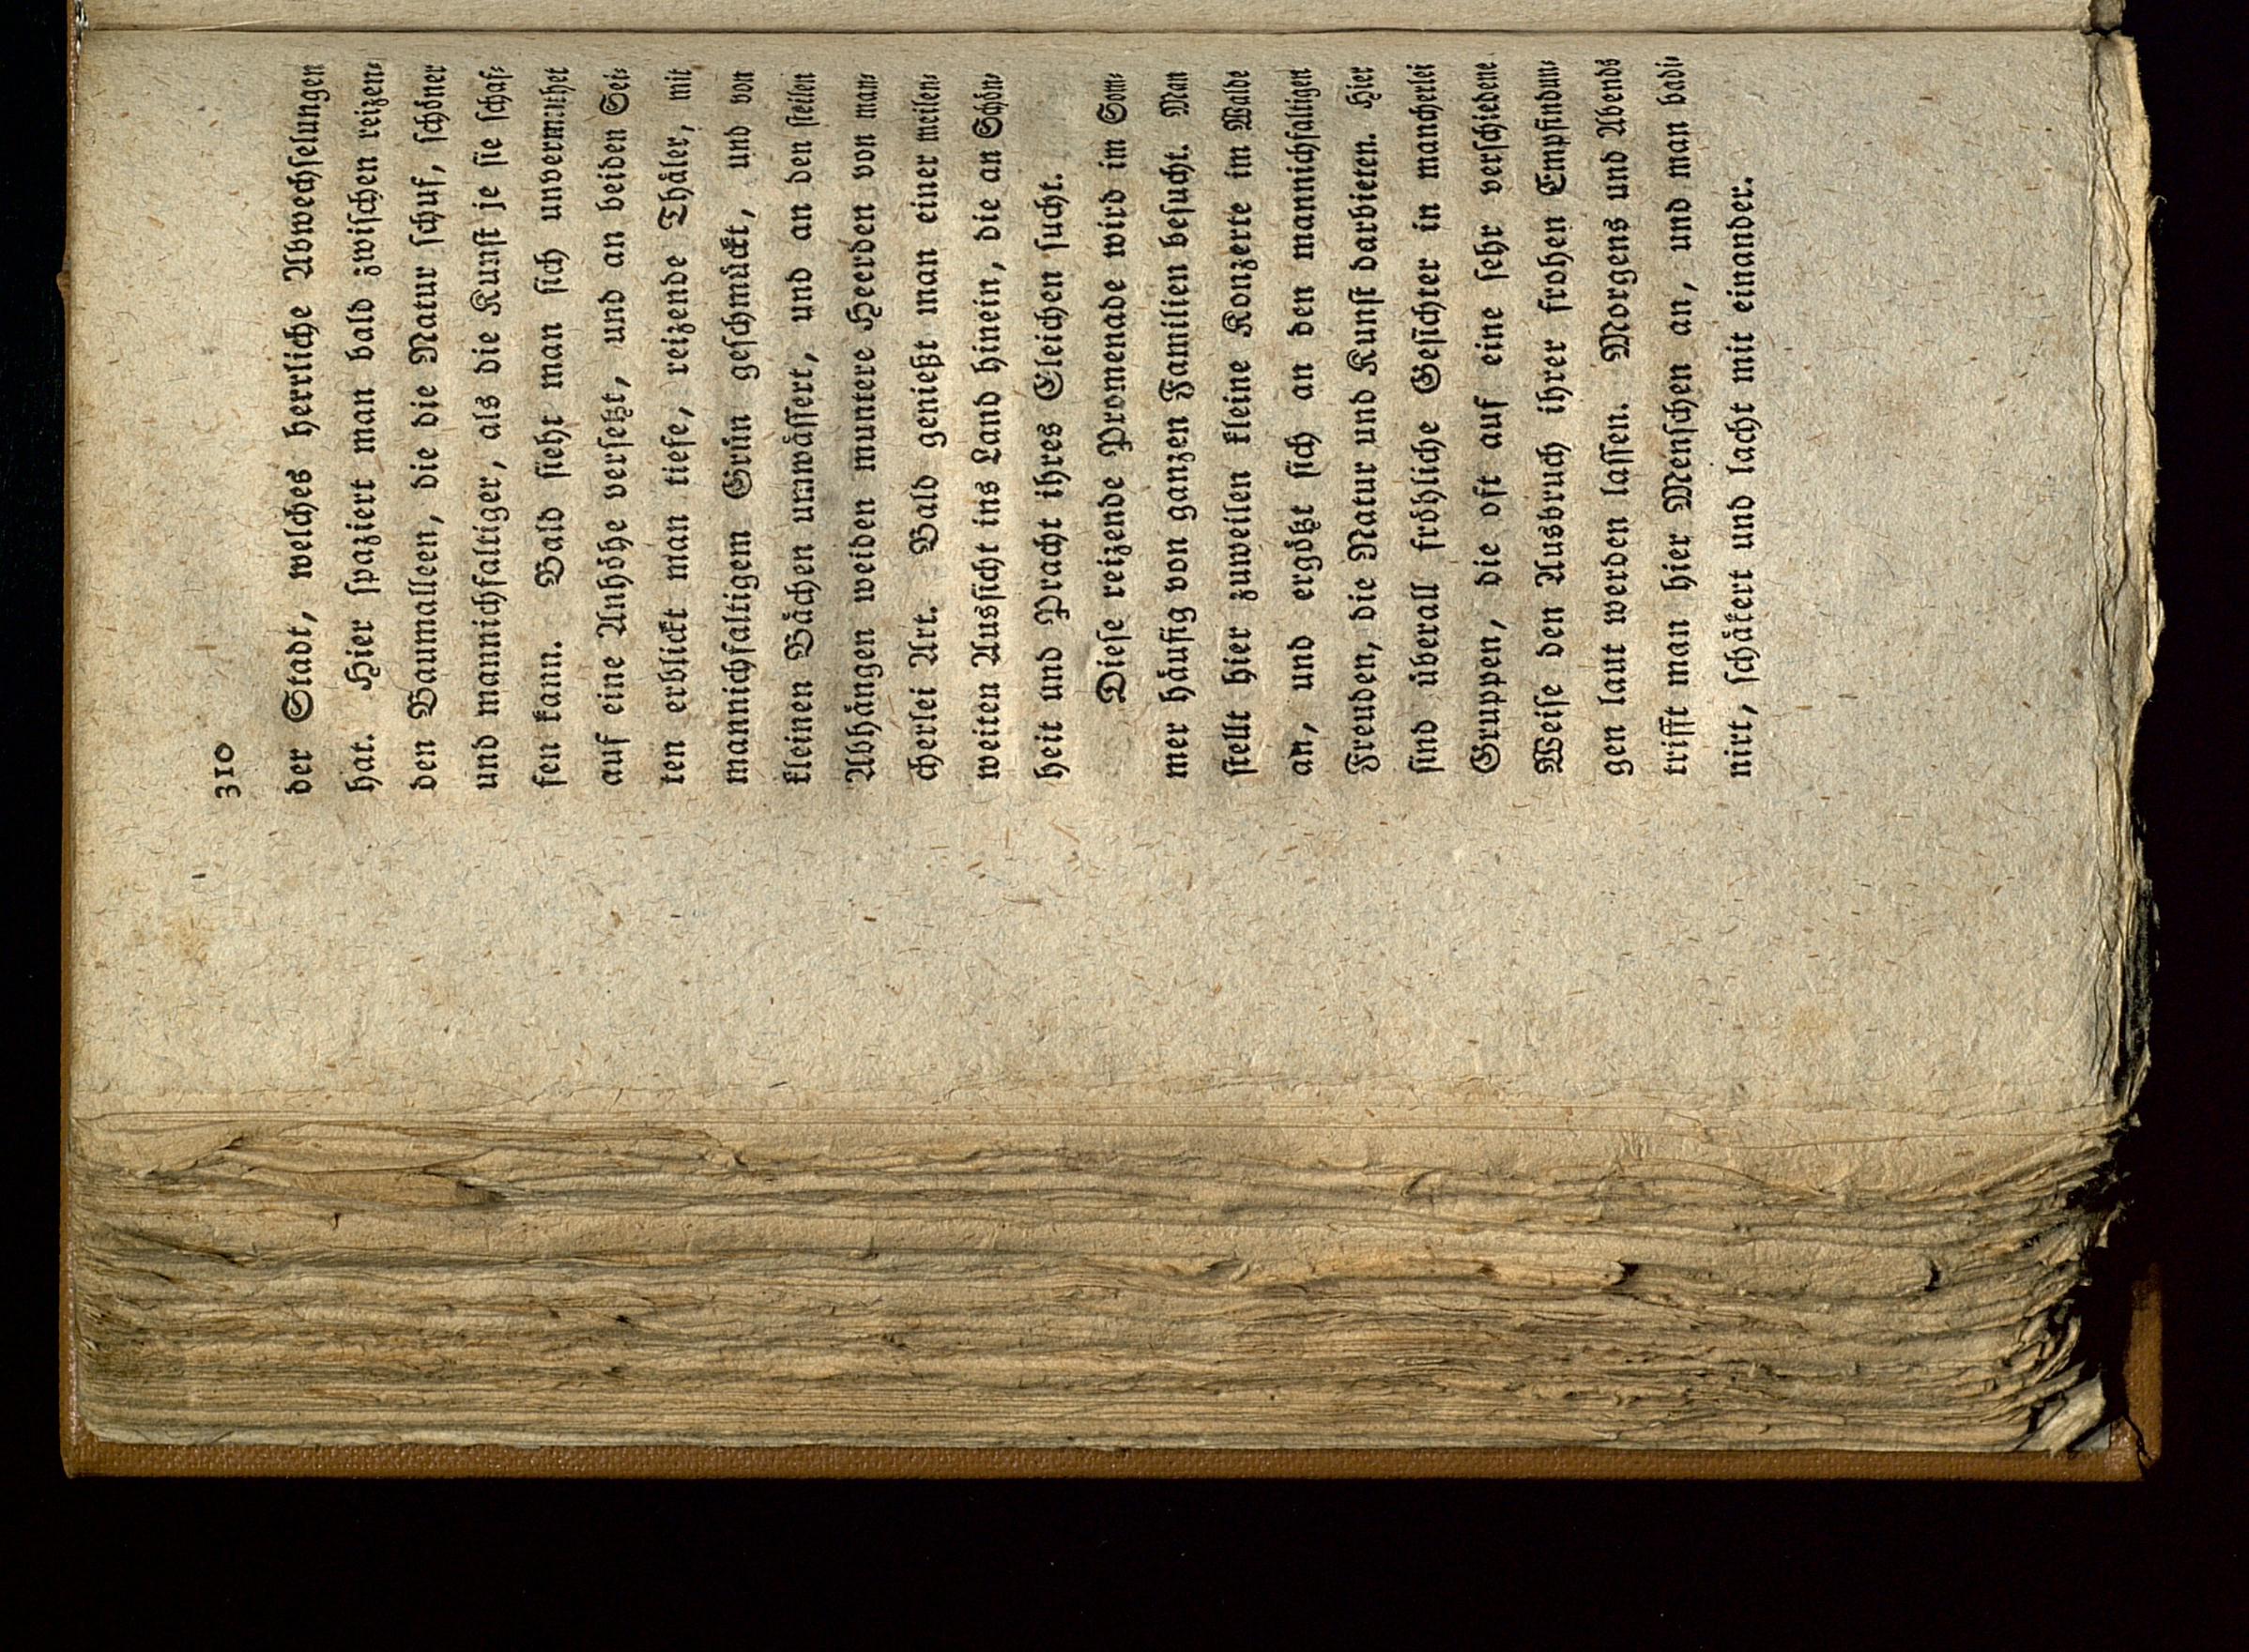 310
der Stadt, welches herrliche Abwechſelungen
hat. Hier ſpaziert man bald zwiſchen reizen⸗
den Baumalleen, die die Natur ſchuf, ſchöner
und mannichfaltiger, als die Kunſt je ſie ſchaf⸗
fen kann. Bald ſieht man ſich unvermuthet
auf eine Anhöhe verſetzt, und an beiden Sei⸗
ten erblickt man tiefe, reizende Thäler, mit
mannichfaltigem Grün geſchmückt, und von
kleinen Bächen umwäſſert, und an den ſteilen
Abhängen weiden muntere Heerden von man⸗
cherlei Art. Bald genießt man einer meilen⸗
weiten Ausſicht ins Land hinein, die an Schön⸗
heit und Pracht ihres Gleichen ſucht.
Dieſe reizende Promenade wird im Som⸗
mer häufig von ganzen Familien beſucht. Man
ſtellt hier zuweilen kleine Konzerte im Walde
an, und ergötzt ſich an den mannichfaltigen
Freuden, die Natur und Kunſt darbieten. Hier
ſind überall fröhliche Geſichter in mancherlei
Gruppen, die oft auf eine ſehr verſchiedene
Weiſe den Ausbruch ihrer frohen Empfindun⸗
gen laut werden laſſen. Morgens und Abends
trifft man hier Menſchen an, und man badi⸗
nirt, ſchäkert und lacht mit einander.